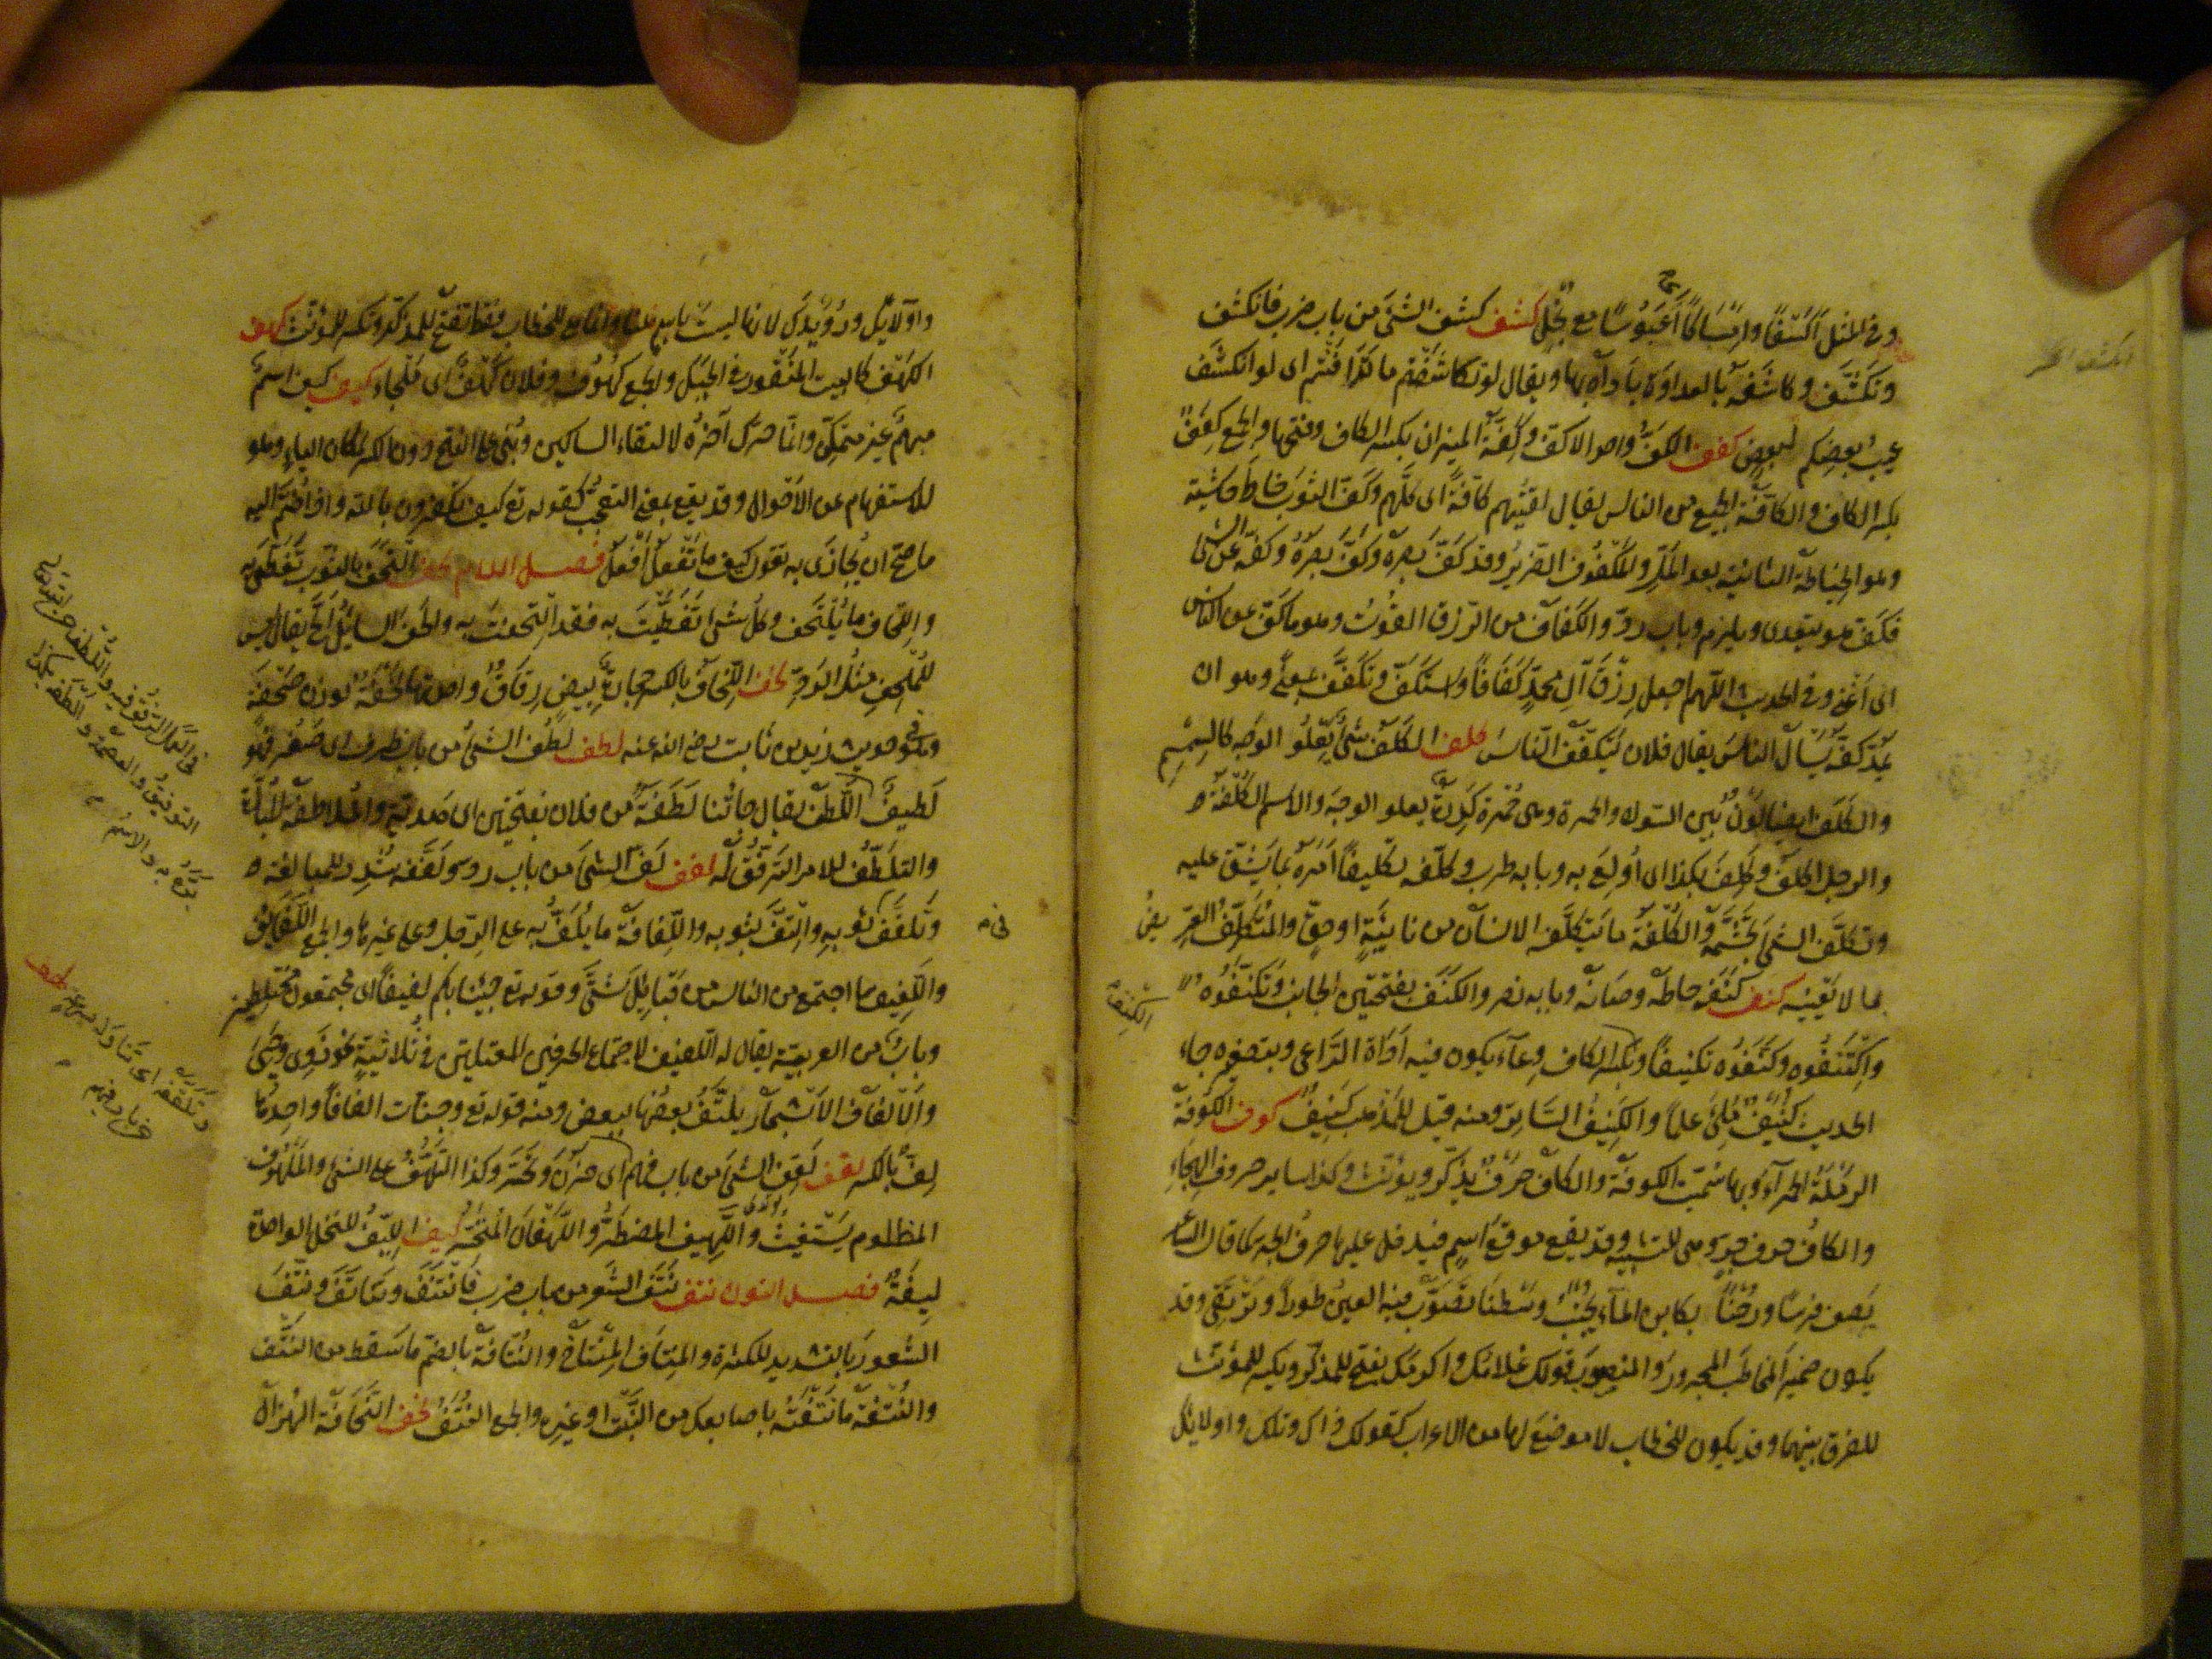 وفي المثل أكسفا وإمساكا أي أعبوسا مع بخل كشف كشف الشئ من باب ضرب فانكشف
وتكشف وكاشفه بالعداوة بادأه بها ويقال لو تكاشفتم ما تدافنتم اى لو انكشف
عيب بعضكم لبعض كفف الكف واحد الاكف وكفة الميزان بكسر الكاف وفتحها والجمع كفف
بكسر الكاف والكافة الجميع من الناس يقال لقيتهم كافة اى كلهم وكف الثوب خاط حاشيته
وهو الخياطة الثانية بعد المل والمكفوف الضرير وقد كف بصره وكف بصره وكفه عن الشئ
فكف هو يتعدى ويلزم وباب رد والكفاف من الرزق القوت وهو ما كف عن الناس
اى أغنى وفي الحديث اللهم اجعل رزق آل محمد كفافا واستكف وتكفف بمعنى وهو ان
يمد كفه يسأل الناس يقال فلان يتكفف الناس كلف الكلف شئ يعلو الوجه كالسمسم
والكلف ايضا لون بين السواد والحمرة وهى حمرة كدرة تعلو الوجه والاسم الكلفة
والرجل اكلف وكلف بكذا اى أولع به وبابه طرب وكلفه تكليفا أمره بما يشق عليه
وتكلف الشئ تجشمه والكلفة ما يتكلفه الانسان من نائبة او حق والمتكلف العريض
لما لا يعنيه كنف كنفه حاطه وصانه وبابه نصر والكنف بفتحتين الجانب وتكنفوه
واكتنفوه وكنفوه تكنيفا وبكسر الكاف وعاء يكون فيه أداة الراعى وبتصغيره جاء
الحديث كنيف ملئ علما والكنيف الساتر ومنه قيل للمذهب كنيف كوف الكوفة
الرملة الحمراء وبها سميت الكوفة والكاف حرف يذكر ويؤنث وكذا ساير حروف الهجاء
والكاف حرف جر وهى للتشبيه وقد يقع موقع اسم فيدخل عليها حرف الجر كما قال الشاعر
يصف فرسا ورحنا بكابن الماء يجنب وسطنا تصوب فيه العين طورا وترتقى وقد
يكون ضمير المخاطب المجرور والمنصوب كقولك غلامك واكرمك بفتح للمذكر ويكسر للمؤنث
للفرق بينهما وقد يكون للخطاب لا موضع لها من الاعراب كقولك ذاك وتلك واولائك
الكنفة
واولائك ورويدك لانها ليست باسم هنا وانما هى للخطاب فقط تفتح للمذكر وتكسر للمؤنث كهف
الكهف كالبيت المنقور في الجبل والجمع كهوف وفلان كهف اى ملجاء كيف كيف اسم
مبهم غير متمكن وانما حرك آخره لالتقاء الساكنين وبنى على الفتح دون الكسر لمكان الياء وهو
للاستفهام عن الأحوال وقد يقع بمعنى التعجب كقوله تع كيف تكفرون بالله واذا ضم اليه
ما صح ان يجازى به تقول كيف ما تفعل أفعل فصل اللام لحف التحف بالثوب تغطى به
واللحاف ما يلتحف وكل شئ تغطيت به فقد التحفت به والحف السائل ألح يقال ليس
للملحف مثل الرد لخف اللخاف بالكسر حجارة بيض رقاق واحدتها لخفة بوزن صحفة
وهو في حديث زيد بن ثابت رضى الله عنه لطف لطف الشئ من باب ظرف اى صغر فهو
لطيف واللطف يقال جائنا لطفة من فلان بفتحتين اى هدية والملاطفة المبارة
والتلطف للامر الترفق له لفف لف الشئ من باب رد ولففه شدد للمبالغة
وتلفف بثوبه والتف بثوبه واللفافة ما يلف به على الرجل وعلى غيرها والجمع اللفائف
واللفيف ما اجتمع من الناس من قبائل شتى وقوله تع جئنا بكم لفيفا اى مجتمعين مختلطين
وباب من العربية يقال له اللفيف لاجتماع الحرفين المعتلين في ثلاثية نحو ذوى وحيى
والالفاف الاشجار يلتف بعضها ببعض ومنه قوله تع وجنات الفافا واحدها
لف بالكسر لهف لهف الشئ من باب فهم اى حزن وتحسر وكذا التلهف على الشئ والملهوف
المظلوم يستغيث واللهيف المضطر واللهفان المتحسر ليف الليف للنخل الواحدة
ليفة فصل النون نتف نتف الشعر من باب ضرب فانتتف وتناتف ونتف
الشعور بالتشديد للكثرة والمنتاف المنتاخ والنتافة بالضم ما سقط من النتف
والنتفة ما نتفته باصابعك من النبت او غيره والجمع النتف نحف النحافة الهزال
في العمل الرفق فيه واللطف من الله تعالى
التوفيق والعصمة والطفه بكذا
بره به والاسم
لقف